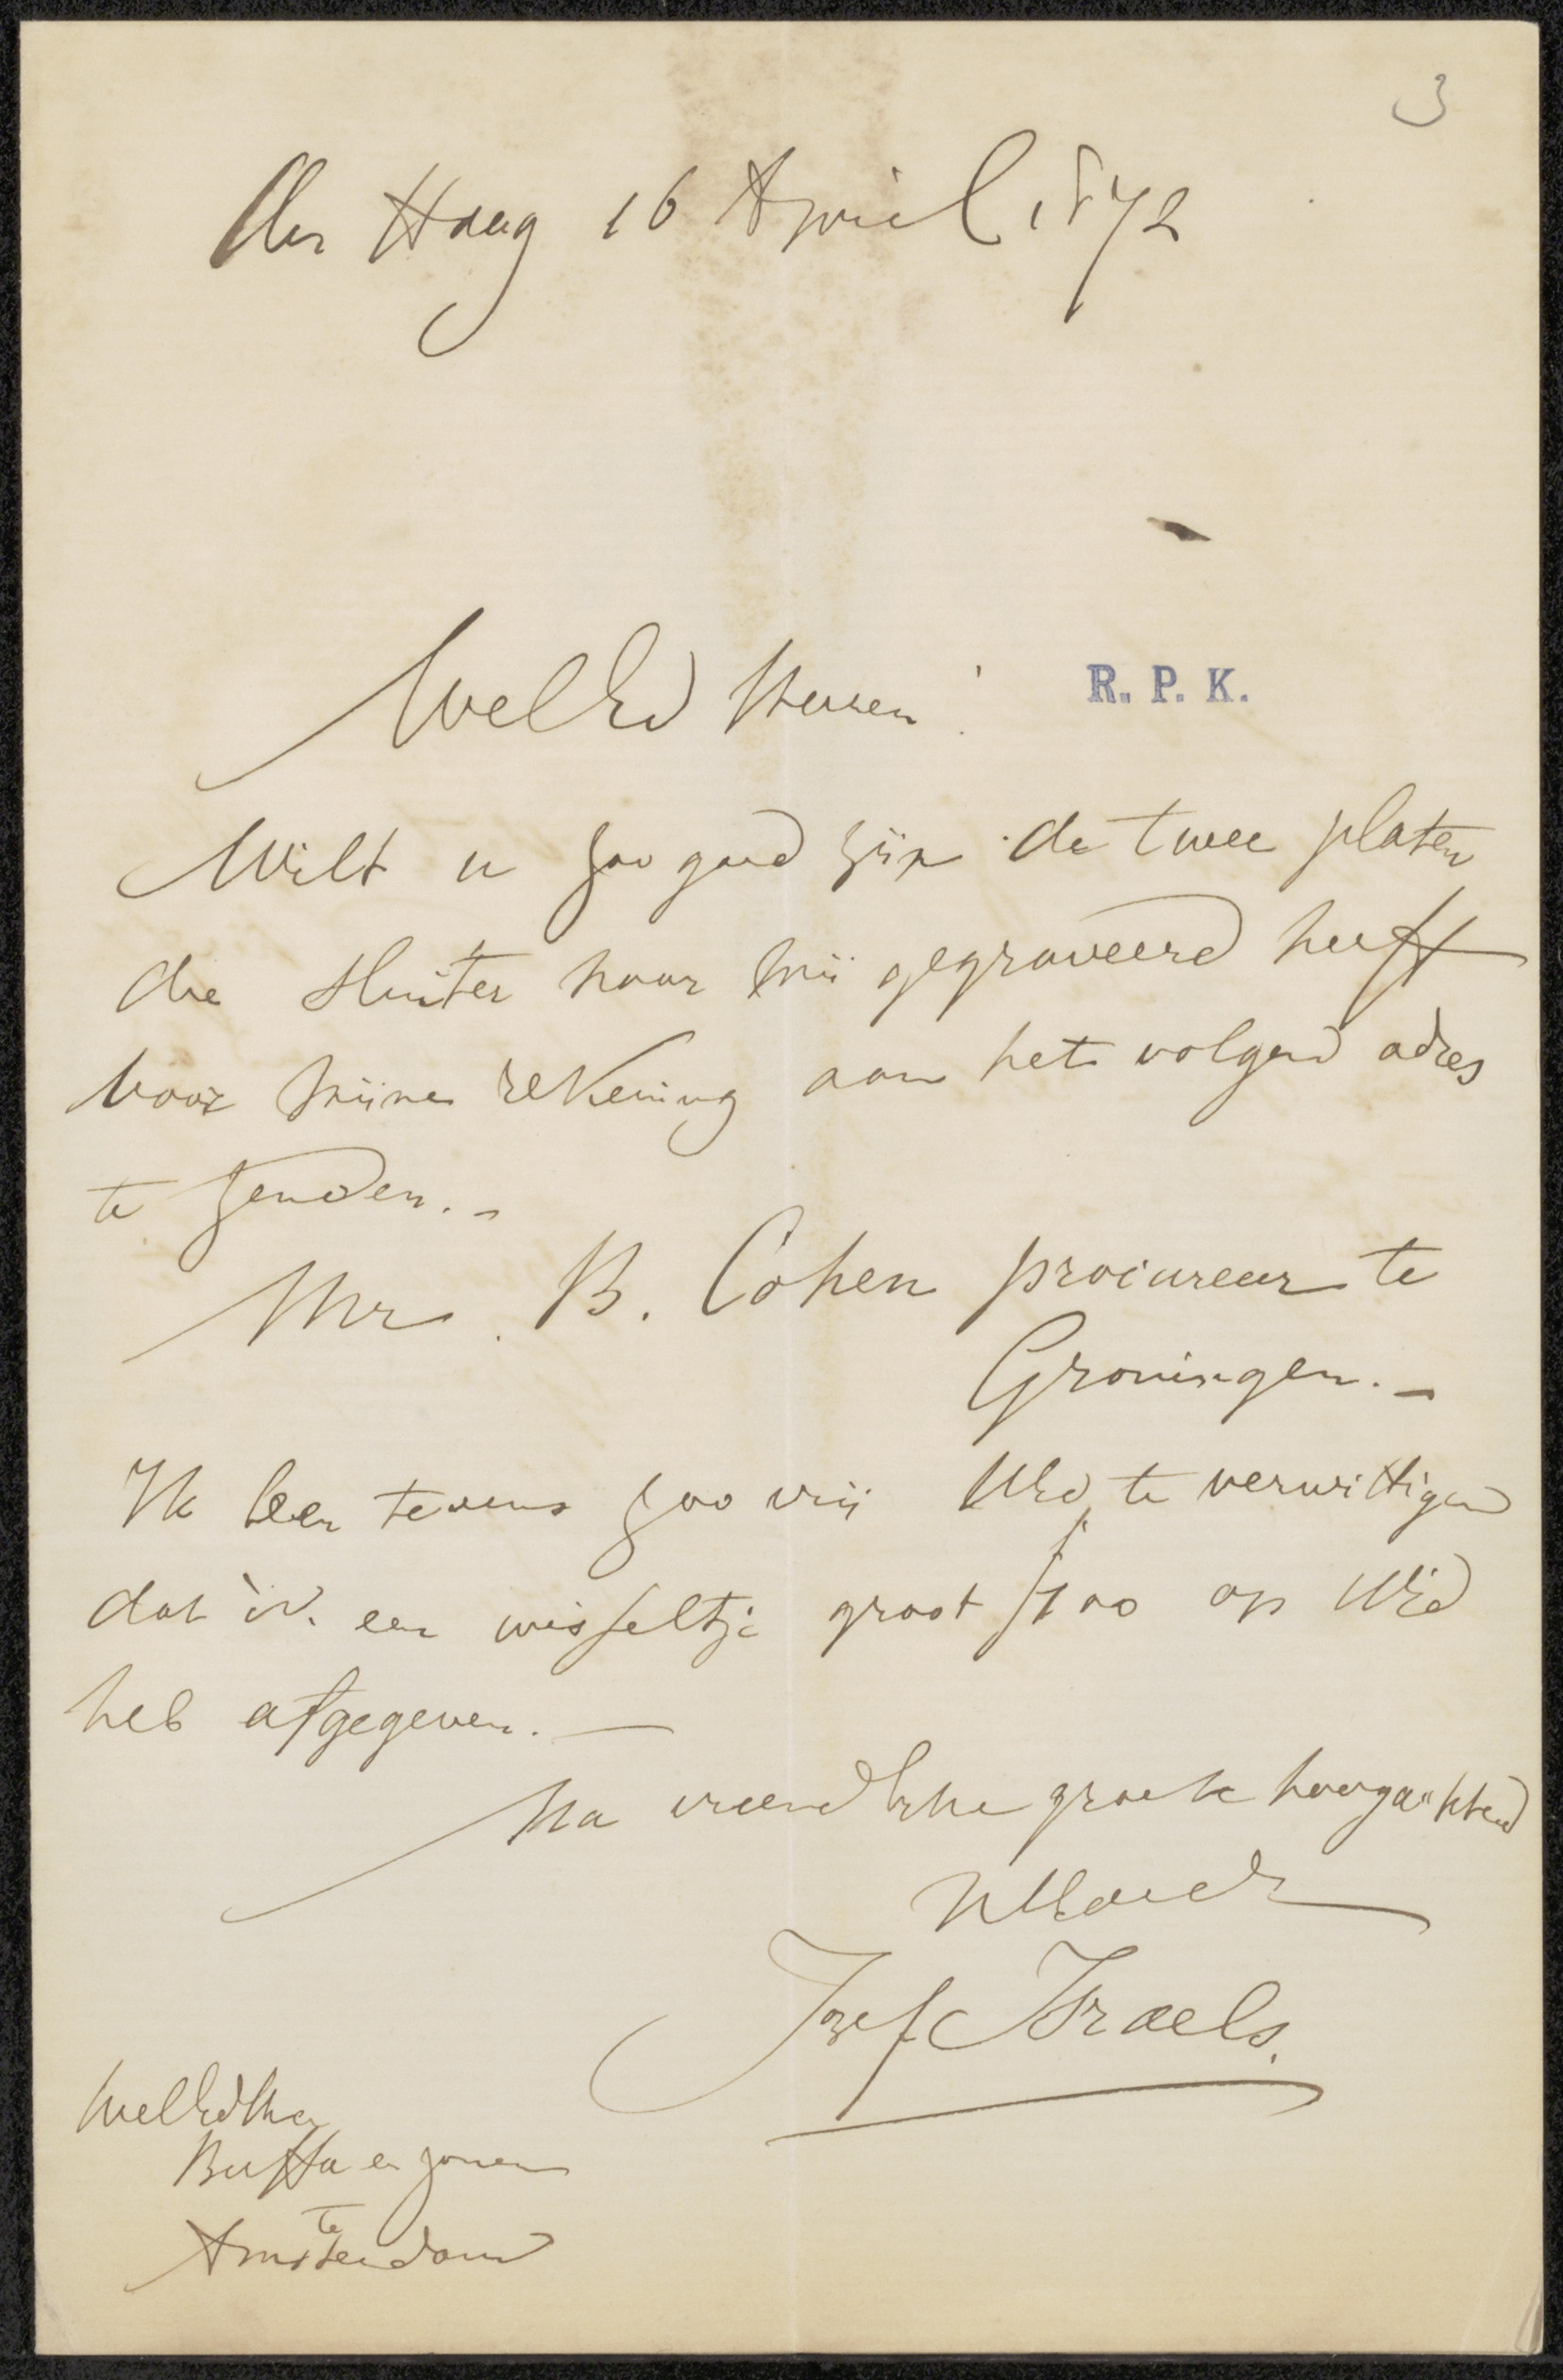 3
den Haag 16 April 1872
WelEd Heeren!
R. P. K.
Wilt u zoo goed zijn de twee platen
die Sluiter naar mij gegraveerd heeft
voor mijne rekening aan het volgend adres
te zenden. -
Mr. B. Cohen procureur te
Groningen. -
Ik ben tevens zoo vrij UEd te verwittigen
dat ik een wisseltje groot f100 op UEd
heb afgegeven. -
Na vriendelijke groete hoogachtend
UEd
Jozef Israels.
WelEd
Buffa en zonen
te
Amsterdam